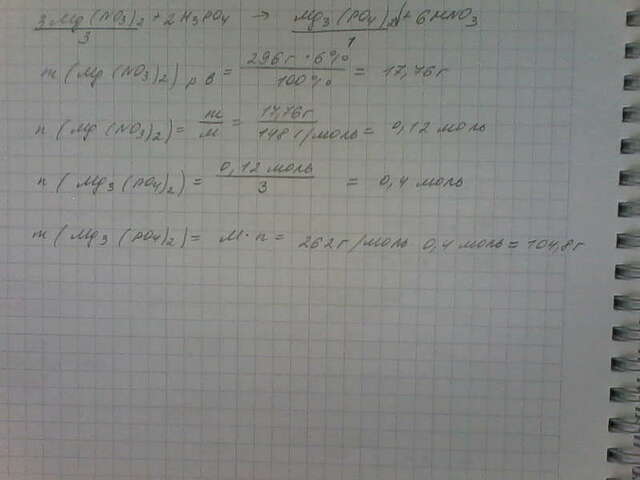 3Mg(NO3)2 + 2H3PO4 → Mg3(PO4)2↓ + 6HNO3
3 1
m(Mg(NO3)2) р в = 296г · 6% / 100% = 17,76г
n(Mg(NO3)2) = m / M = 17,76г / 148 г/моль = 0,12 моль
n(Mg3(PO4)2) = 0,12 моль / 3 = 0,4 моль
m(Mg3(PO4)2) = M · n = 262г/моль 0,4 моль = 104,8г